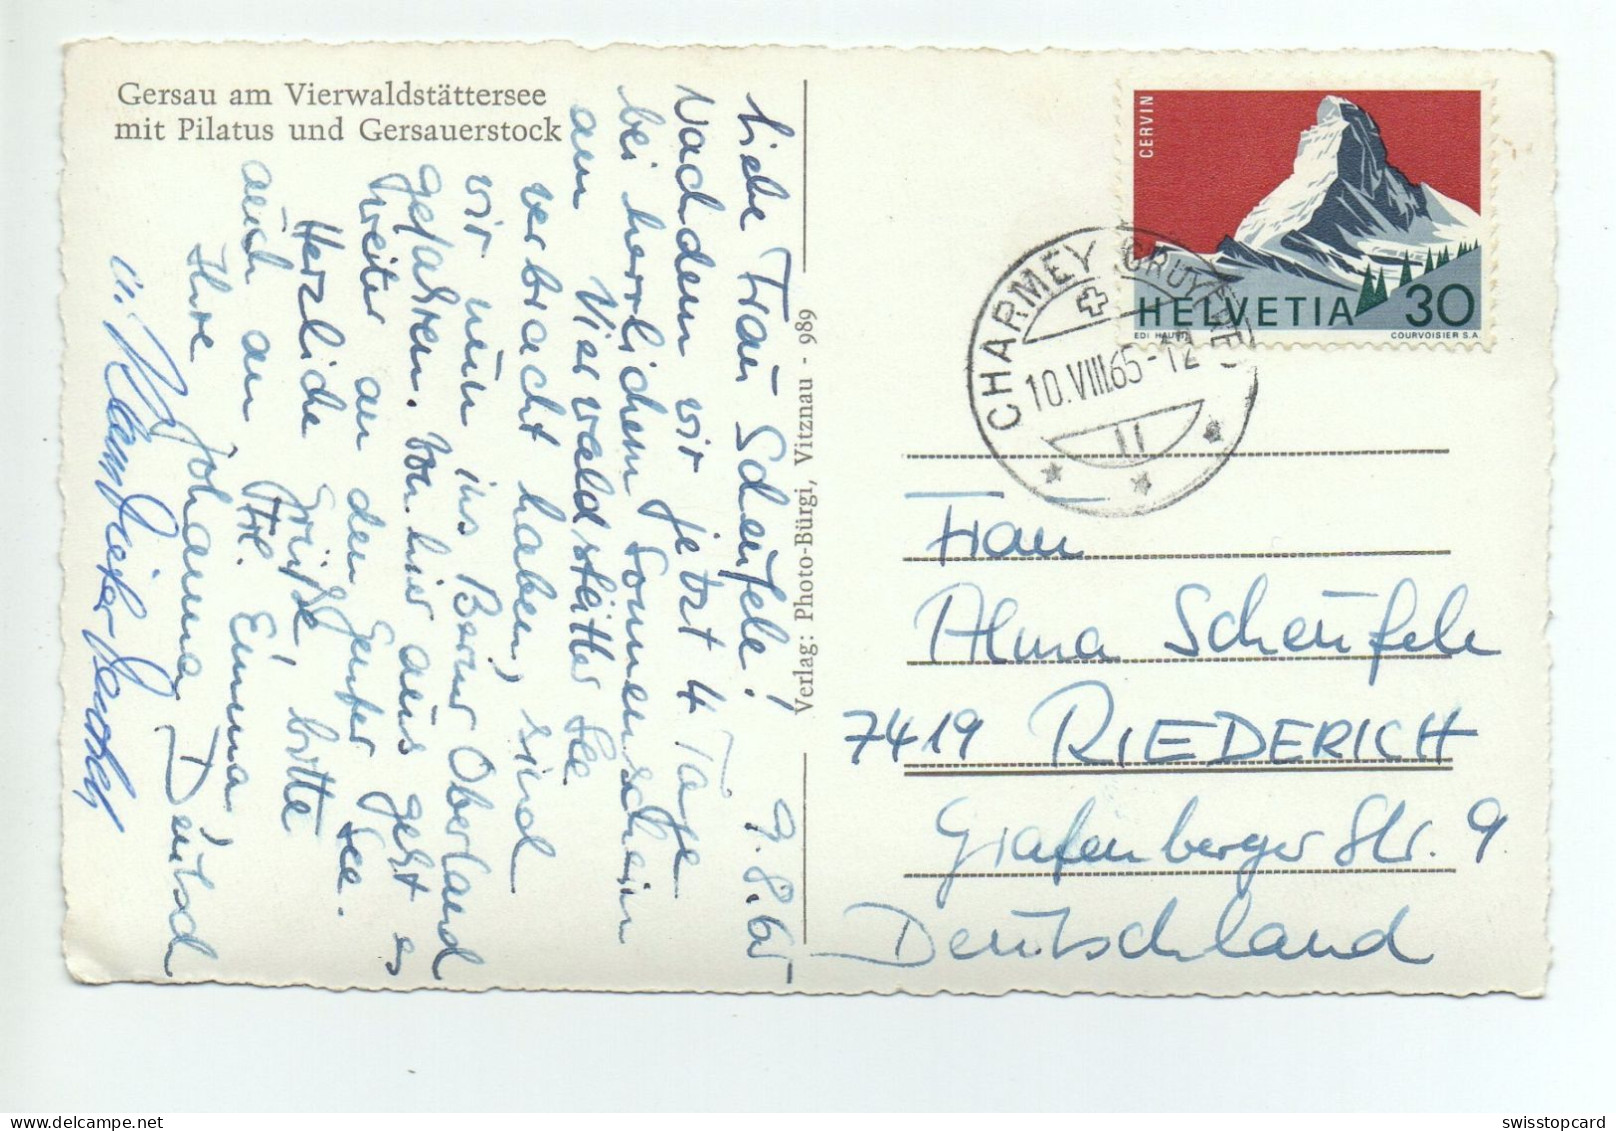 Gersau am Vierwaldstättersee
mit Pilatus und Gersauerstock
9.8.65
Liebe Frau Scheufele!
Nachdem wir jetzt 4 Tage
bei herrlichem Sonnenschein
am Vierwaldstätter See
verbracht haben, sind
wir nun ins Berner Oberland
gefahren. Von hier aus geht es
weiter an den Genfer See.
Herzliche Grüße, bitte
auch an Frl. Emma,
Ihre Johanna Deutsch
u.
Verlag: Photo-Bürgi, Vitznau - 989
CERVIN
HELVETIA 30
EDI HAURI
COURVOISIER S.A.
CHARMEY (GRUYÈRE)
10.VIII.65-12
Frau
Alma Scheufele
7419 RIEDERICH
Grafenberger Str. 9
Deutschland
swisstopcard